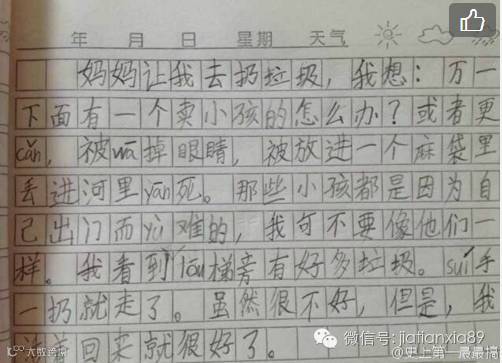 年 月 日 星期 天气
妈妈让我去扔垃圾，我想：万一
下面有一个卖小孩的怎么办？或者更
cǎn，被wā掉眼睛，被放进一个麻袋里
丢进河里yān死。那些小孩都是因为自
己出门而yù难的，我可不要像他们一
样。我看到lóu梯旁有好多垃圾。suí手
一扔就走了。虽然很不好，但是，我
回来就很好了。
微信号: jiatianxia89
@史上第一最最搞